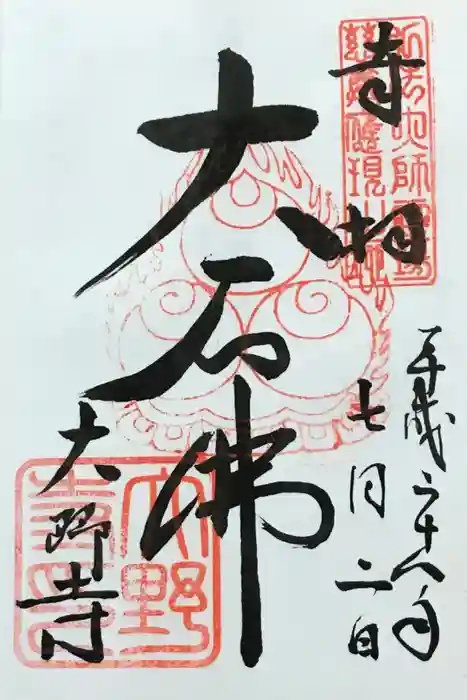 奉拝
平成二十八年
七月二日
大石佛
大野寺